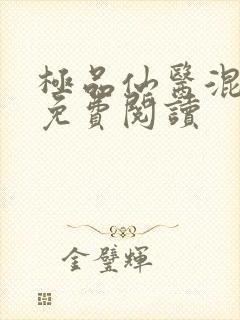 極品仙醫混
免費閱讀
金璧輝